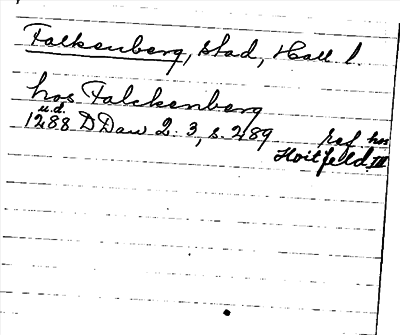 Falkenberg, stad, Hall l.
hos Falckenberg
u.d.
1288 DDan 2. 3, s. 289 ref hos
Hvitfeld III